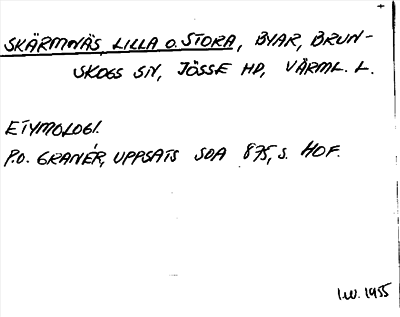 SKÄRMNÄS, LILLA O. STORA, BYAR, BRUN-
SKOGS SN, JÖSSE HD, VÄRML. L.
ETYMOLOGI.
P.O. GRANÉR, UPPSATS SOA 875, S. HOF.
I.W. 1955